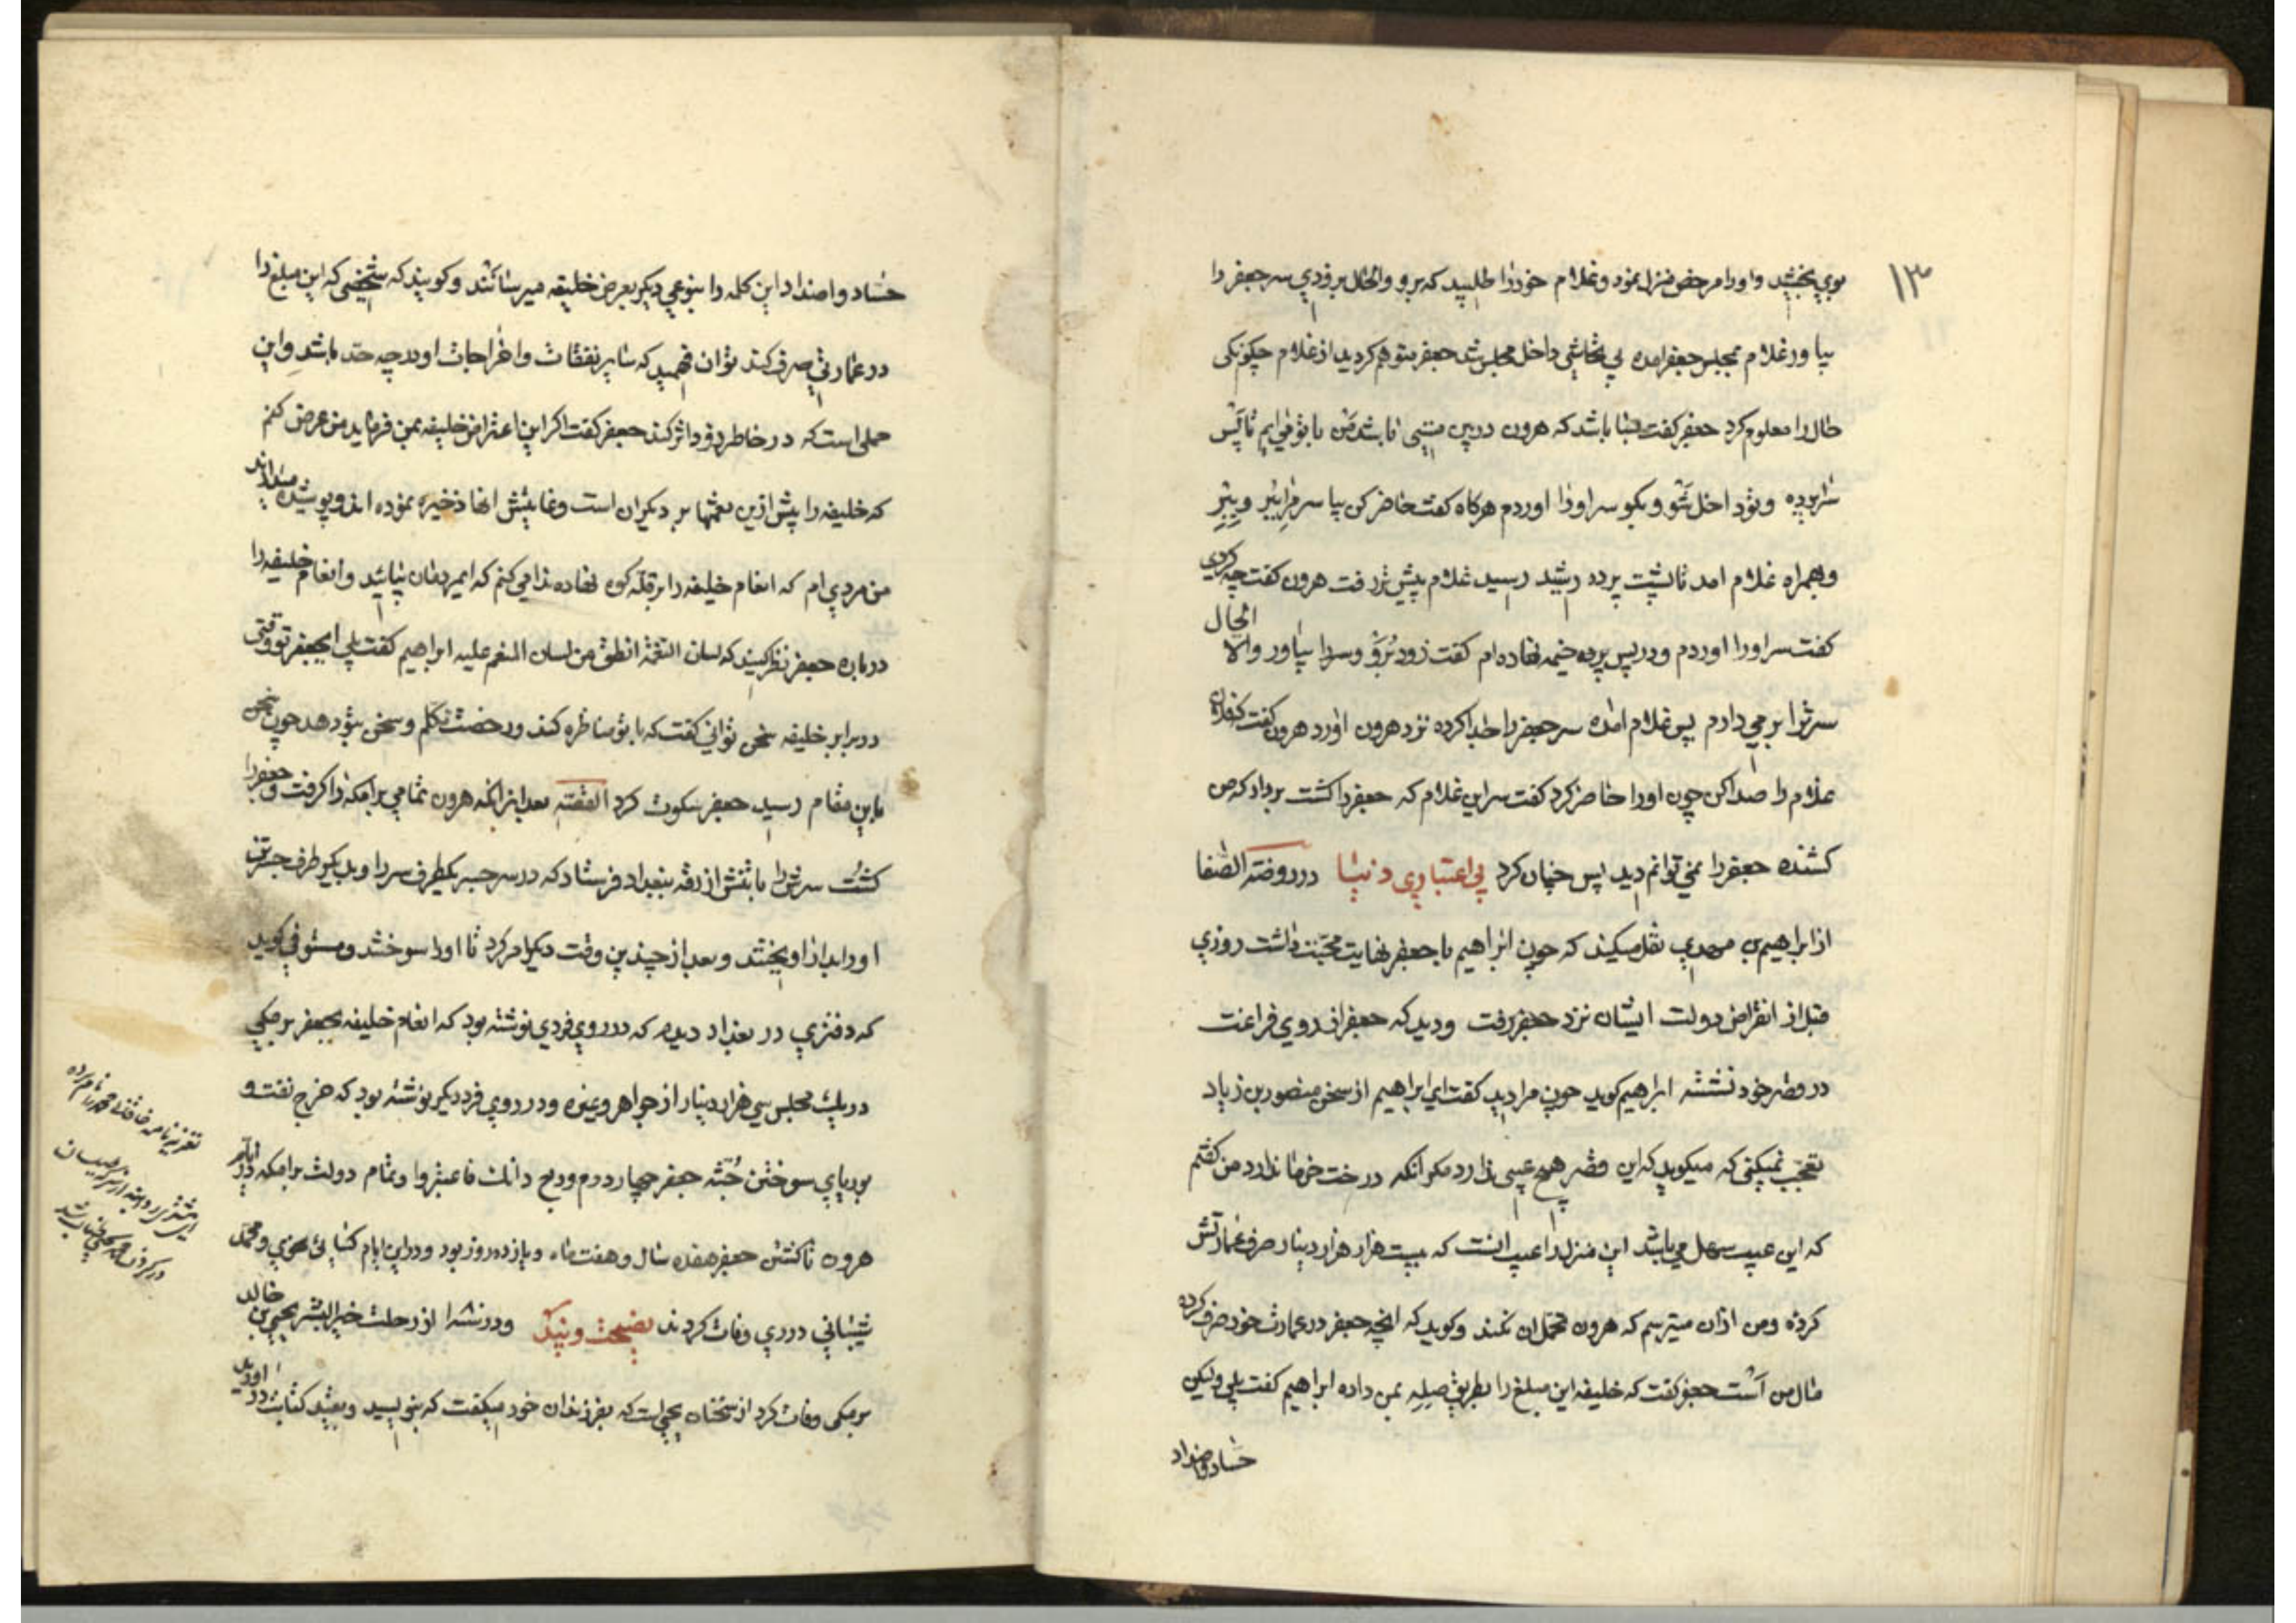 ۱۳
بوی بخشید و او را مرخص منزل نمود و غلام خود را طلبید که برو و الحال بزودی سر جعفر را
بیاور غلام بمجلس جعفر آمده بی تحاشی داخل مجلس شد جعفر متوهم کردید از غلام چکونکی
حال را معلوم کرد جعفر کفت مبنا باشد که هرون درین مستی باشد من با تو می آیم تا پس
سراپرده و تو داخل شو و بکو سر او را اوردم هرکاه کفت حاضر کن بیا سر مرا ببر و ببر
و همراه غلام امد تا پشت پرده رشید رسید غلام پیش تر رفت هرون کفت چه کردی
کفت سر او را اوردم و در پس پرده خیمه نهاده ام کفت زود برو و سر را بیاور والا الحال
سر ترا بر می دارم پس غلام امده سر جعفر را جدا کرده نزد هرون اورد هرون کفت که فلان
غلام را صدا کن چون او را حاضر کرد کفت سر این غلام که جعفر را کشت بردار که من
کشنده جعفر را نمی توانم دید پس چنان کرد بی اعتباری دنیا در روضة الصفا
از ابراهیم بن مهدی نقل میکند که چون ابراهیم با جعفر نهایت محبت داشت روزی
قبل از انقراض دولت ایشان نزد جعفر رفت و دید که جعفر از روی فراغت
در قصر خود نشسته ابراهیم کوید چون مرا دید کفت ای ابراهیم از سخن منصور بن زیاد
تعجب نمیکنی که میکوید که این قصر هیچ عیبی ندارد مکر انکه درخت خرما ندارد من کفتم
که این عیب سهل می باشد این منزل را عیب انست که بیست هزار هزار دینار صرف عمارتش
کرده و من از ان میترسم که هرون تحمل ان نکند و کوید که انچه جعفر در عمارت خود صرف کرده
مال من است جعفر کفت که خلیفه این مبلغ را بطریق صله بمن داده ابراهیم کفت بلی ولیکن
حساد و اضداد
حساد و اضداد این کلمه را بنوعی دیکر بعرض خلیفه میرسانند و کویند که شخصی که این مبلغ را
در عمارتی صرف کند توان فهمید که سایر نفقات و اخراجات او در چه حد باشد و این
حملی است که در خاطر زود اثر کند جعفر کفت اکر این اعتراض خلیفه بمن فرماید من عرض کنم
که خلیفه را پیش ازین نعمتها بر دیکران است و غایتش انها ذخیره نموده اند و پوشیده میدارند
من مردی ام که انعام خلیفه را بر قله کوه نهاده ندا می کنم که ای مردمان بیائید و انعام خلیفه را
درباره جعفر نظر کنید که لسان النعمة انطق من لسان المنعم علیه ابراهیم کفت بلی ای جعفر تو وقتی
در برابر خلیفه سخن توانی کفت که با تو مناظره کند و رخصت تکلم و سخن بتو دهد چون سخن
باین مقام رسید جعفر سکوت کرد القصه بعد از انکه هرون تمامی برامکه را کرفت و جعفر را
کشت سرش را با تنش از رقه ببغداد فرستاد که در سر جسر یکطرف سر را و بدیکر طرف جسر تن
او را بدار اویختند و بعد از چندین وقت دیکر امر کرد تا او را سوختند و مستوفی کوید
که دفتری در بغداد دیدم که در روی فردی نوشته بود که انعام خلیفه بجعفر برمکی
در یک مجلس سی هزار دینار از جواهر و غیره و در روی فرد دیکر نوشته بود که خرج نفت و
بوریای سوختن جثه جعفر چهار درم و ربع دانک فاعتبروا و تمام دولت برامکه در ایام
هرون تا کشتن جعفر هفده سال و هفت ماه و پازده روز بود و در این ایام کسائی نحوی و محمد
شیبانی در ری وفات کردند نصیحت و نیک و در سنه از رحلت خیر البشر یحیی بن خالد
برمکی وفات کرد از سخنان یحیی است که بفرزندان خود میکفت که بنویسید و بقید کتابت در اورید